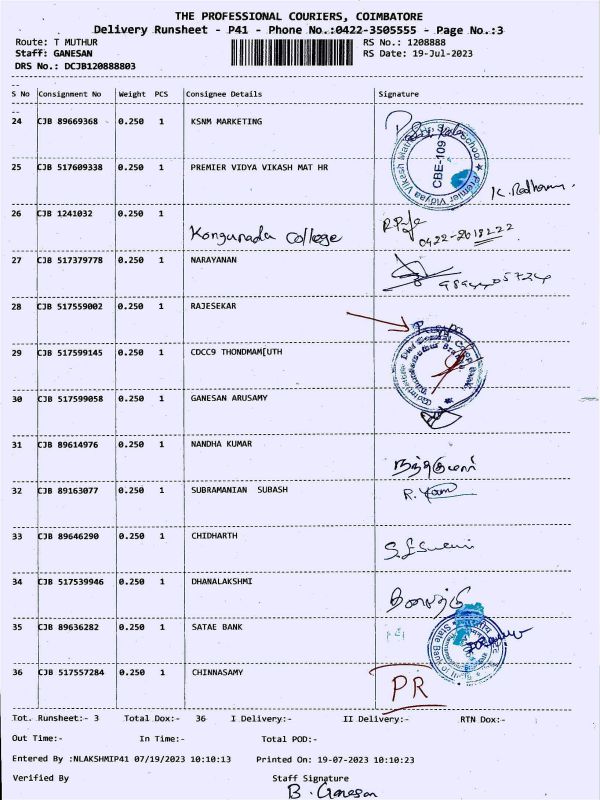 THE PROFESSIONAL COURIERS, COIMBATORE
Delivery Runsheet - P41 - Phone No.:0422-3505555 - Page No.:3
Route: T MUTHUR RS No.: 1208888
Staff: GANESAN RS Date: 19-Jul-2023
DRS No.: DCJB120888803
S No Consignment No Weight PCS Consignee Details Signature
24 CJB 89669368 0.250 1 KSNM MARKETING
25 CJB 517609338 0.250 1 PREMIER VIDYA VIKASH MAT HR
CBE-109
26 CJB 1241032 0.250 1
Kongunada college 0422-2618222
27 CJB 517379778 0.250 1 NARAYANAN
28 CJB 517559002 0.250 1 RAJESEKAR
29 CJB 517599145 0.250 1 CDCC9 THONDMAM[UTH
30 CJB 517599058 0.250 1 GANESAN ARUSAMY
31 CJB 89614976 0.250 1 NANDHA KUMAR
நந்தகுமார்
32 CJB 89163077 0.250 1 SUBRAMANIAN SUBASH
33 CJB 89646290 0.250 1 CHIDHARTH
34 CJB 517539946 0.250 1 DHANALAKSHMI
35 CJB 89636282 0.250 1 SATAE BANK
36 CJB 517557284 0.250 1 CHINNASAMY
PR
Tot. Runsheet:- 3 Total Dox:- 36 I Delivery:- II Delivery:- RTN Dox:-
Out Time:- In Time:- Total POD:-
Entered By :NLAKSHMIP41 07/19/2023 10:10:13 Printed On: 19-07-2023 10:10:23
Verified By Staff Signature
B. Ganesan